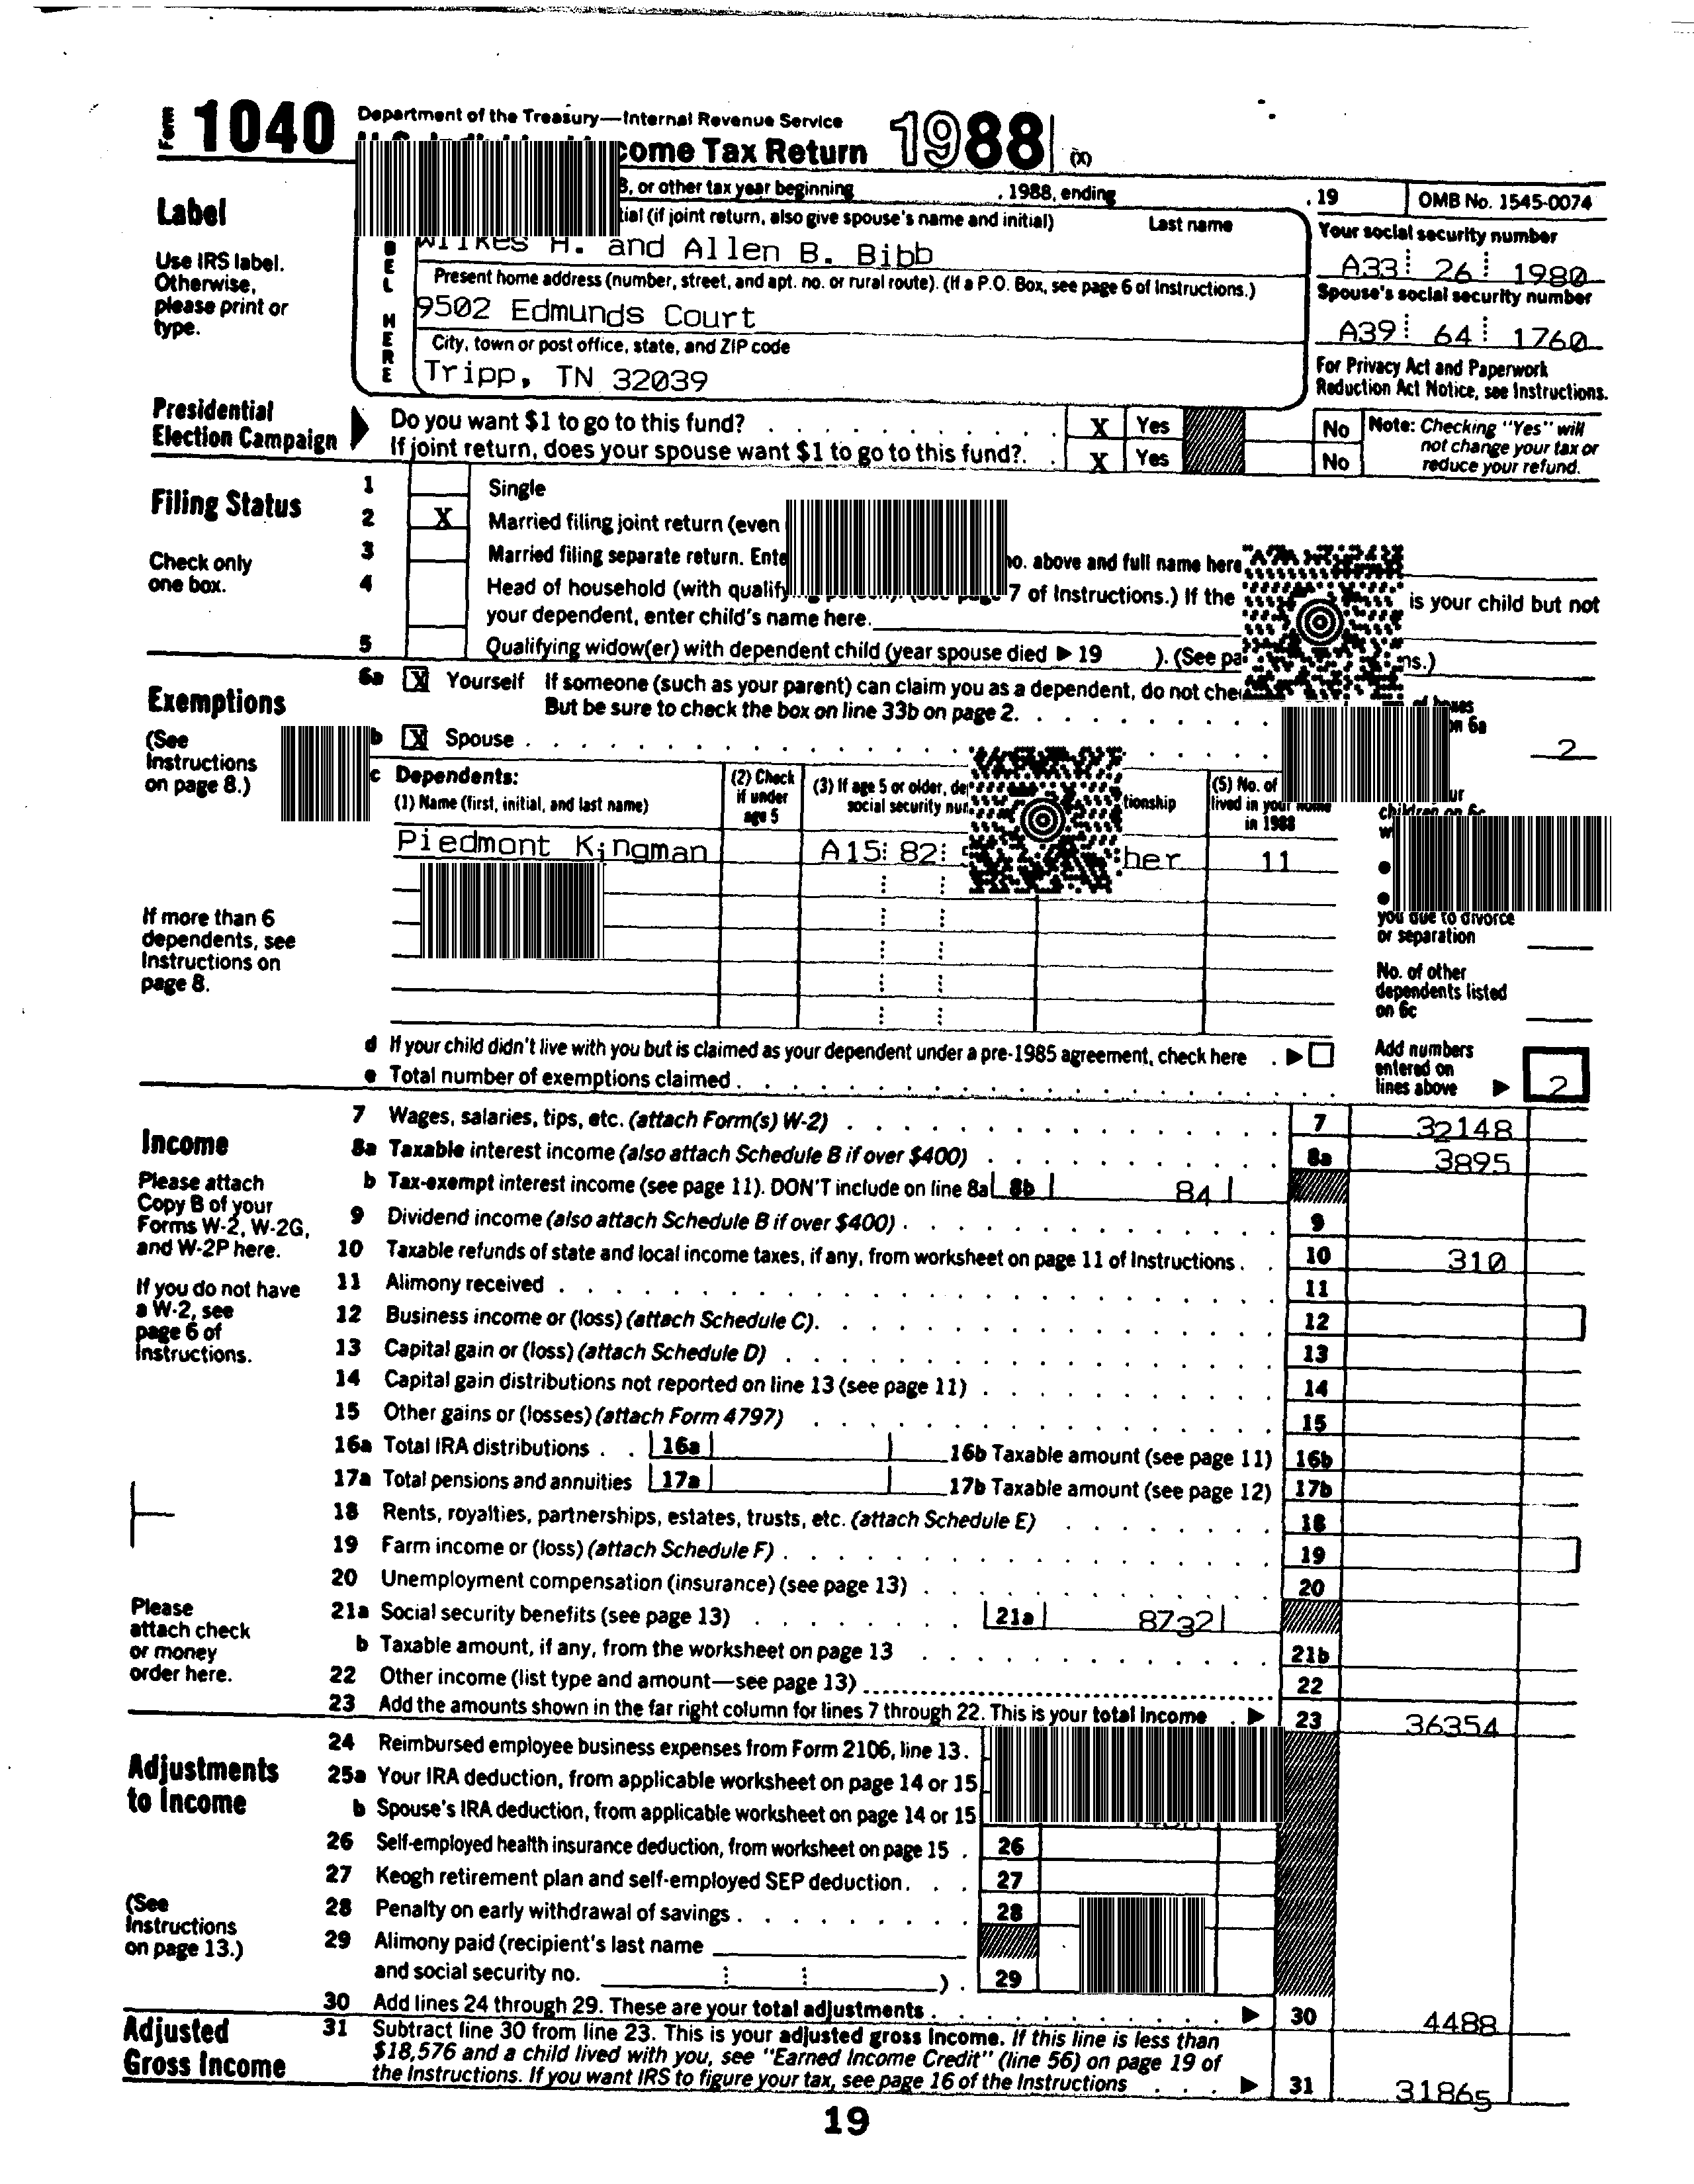 Form 1040 Department of the Treasury—Internal Revenue Service
come Tax Return 1988 (X)
or other tax year beginning , 1988, ending , 19 OMB No. 1545-0074
Label
(if joint return, also give spouse's name and initial) Last name
Your social security number
Use IRS label.
Otherwise,
please print or
type.
Wilkes H. and Allen B. Bibb
A33 26 1980
Present home address (number, street, and apt. no. or rural route). (If a P.O. Box, see page 6 of Instructions.)
Spouse's social security number
9502 Edmunds Court
A39 64 1760
HERE
City, town or post office, state, and ZIP code
Tripp, TN 32039
For Privacy Act and Paperwork
Reduction Act Notice, see Instructions.
Presidential
Election Campaign
Do you want $1 to go to this fund? X Yes No
If joint return, does your spouse want $1 to go to this fund?. X Yes No
Note: Checking "Yes" will
not change your tax or
reduce your refund.
Filing Status
Check only
one box.
1 Single
2 X Married filing joint return (even
3 Married filing separate return. no. above and full name here
4 Head of household (with 7 of Instructions.) If the is your child but not
your dependent, enter child's name here.
5 Qualifying widow(er) with dependent child (year spouse died ▶ 19 ). (See
Exemptions
(See
Instructions
on page 8.)
6a X Yourself If someone (such as your parent) can claim you as a dependent, do not
But be sure to check the box on line 33b on page 2.
on 6a
b X Spouse
2
c Dependents:
(1) Name (first, initial, and last name)
(2) Check
if under
age 5
(3) If age 5 or older,
social security
(5) No. of
lived in your home
in 1988
children on 6c
Piedmont Kingman A15 82 11
If more than 6
dependents, see
Instructions on
page 8.
you due to divorce
or separation
No. of other
dependents listed
on 6c
d If your child didn't live with you but is claimed as your dependent under a pre-1985 agreement, check here . ▶
e Total number of exemptions claimed
Add numbers
entered on
lines above ▶ 2
Income
Please attach
Copy B of your
Forms W-2, W-2G,
and W-2P here.
If you do not have
a W-2, see
page 6 of
Instructions.
7 Wages, salaries, tips, etc. (attach Form(s) W-2) 7 32148
8a Taxable interest income (also attach Schedule B if over $400) 8a 3895
b Tax-exempt interest income (see page 11). DON'T include on line 8a 8b 84
9 Dividend income (also attach Schedule B if over $400) 9
10 Taxable refunds of state and local income taxes, if any, from worksheet on page 11 of Instructions 10 310
11 Alimony received 11
12 Business income or (loss) (attach Schedule C) 12
13 Capital gain or (loss) (attach Schedule D) 13
14 Capital gain distributions not reported on line 13 (see page 11) 14
15 Other gains or (losses) (attach Form 4797) 15
16a Total IRA distributions 16a 16b Taxable amount (see page 11) 16b
17a Total pensions and annuities 17a 17b Taxable amount (see page 12) 17b
18 Rents, royalties, partnerships, estates, trusts, etc. (attach Schedule E) 18
19 Farm income or (loss) (attach Schedule F) 19
20 Unemployment compensation (insurance) (see page 13) 20
Please
attach check
or money
order here.
21a Social security benefits (see page 13) 21a 8732
b Taxable amount, if any, from the worksheet on page 13 21b
22 Other income (list type and amount—see page 13) 22
23 Add the amounts shown in the far right column for lines 7 through 22. This is your total income ▶ 23 36354
Adjustments
to Income
(See
Instructions
on page 13.)
24 Reimbursed employee business expenses from Form 2106, line 13.
25a Your IRA deduction, from applicable worksheet on page 14 or 15
b Spouse's IRA deduction, from applicable worksheet on page 14 or 15
26 Self-employed health insurance deduction, from worksheet on page 15 . 26
27 Keogh retirement plan and self-employed SEP deduction. 27
28 Penalty on early withdrawal of savings 28
29 Alimony paid (recipient's last name
and social security no. ) . 29
30 Add lines 24 through 29. These are your total adjustments ▶ 30 4488
Adjusted
Gross Income
31 Subtract line 30 from line 23. This is your adjusted gross income. If this line is less than
$18,576 and a child lived with you, see "Earned Income Credit" (line 56) on page 19 of
the Instructions. If you want IRS to figure your tax, see page 16 of the Instructions ▶ 31 31865
19